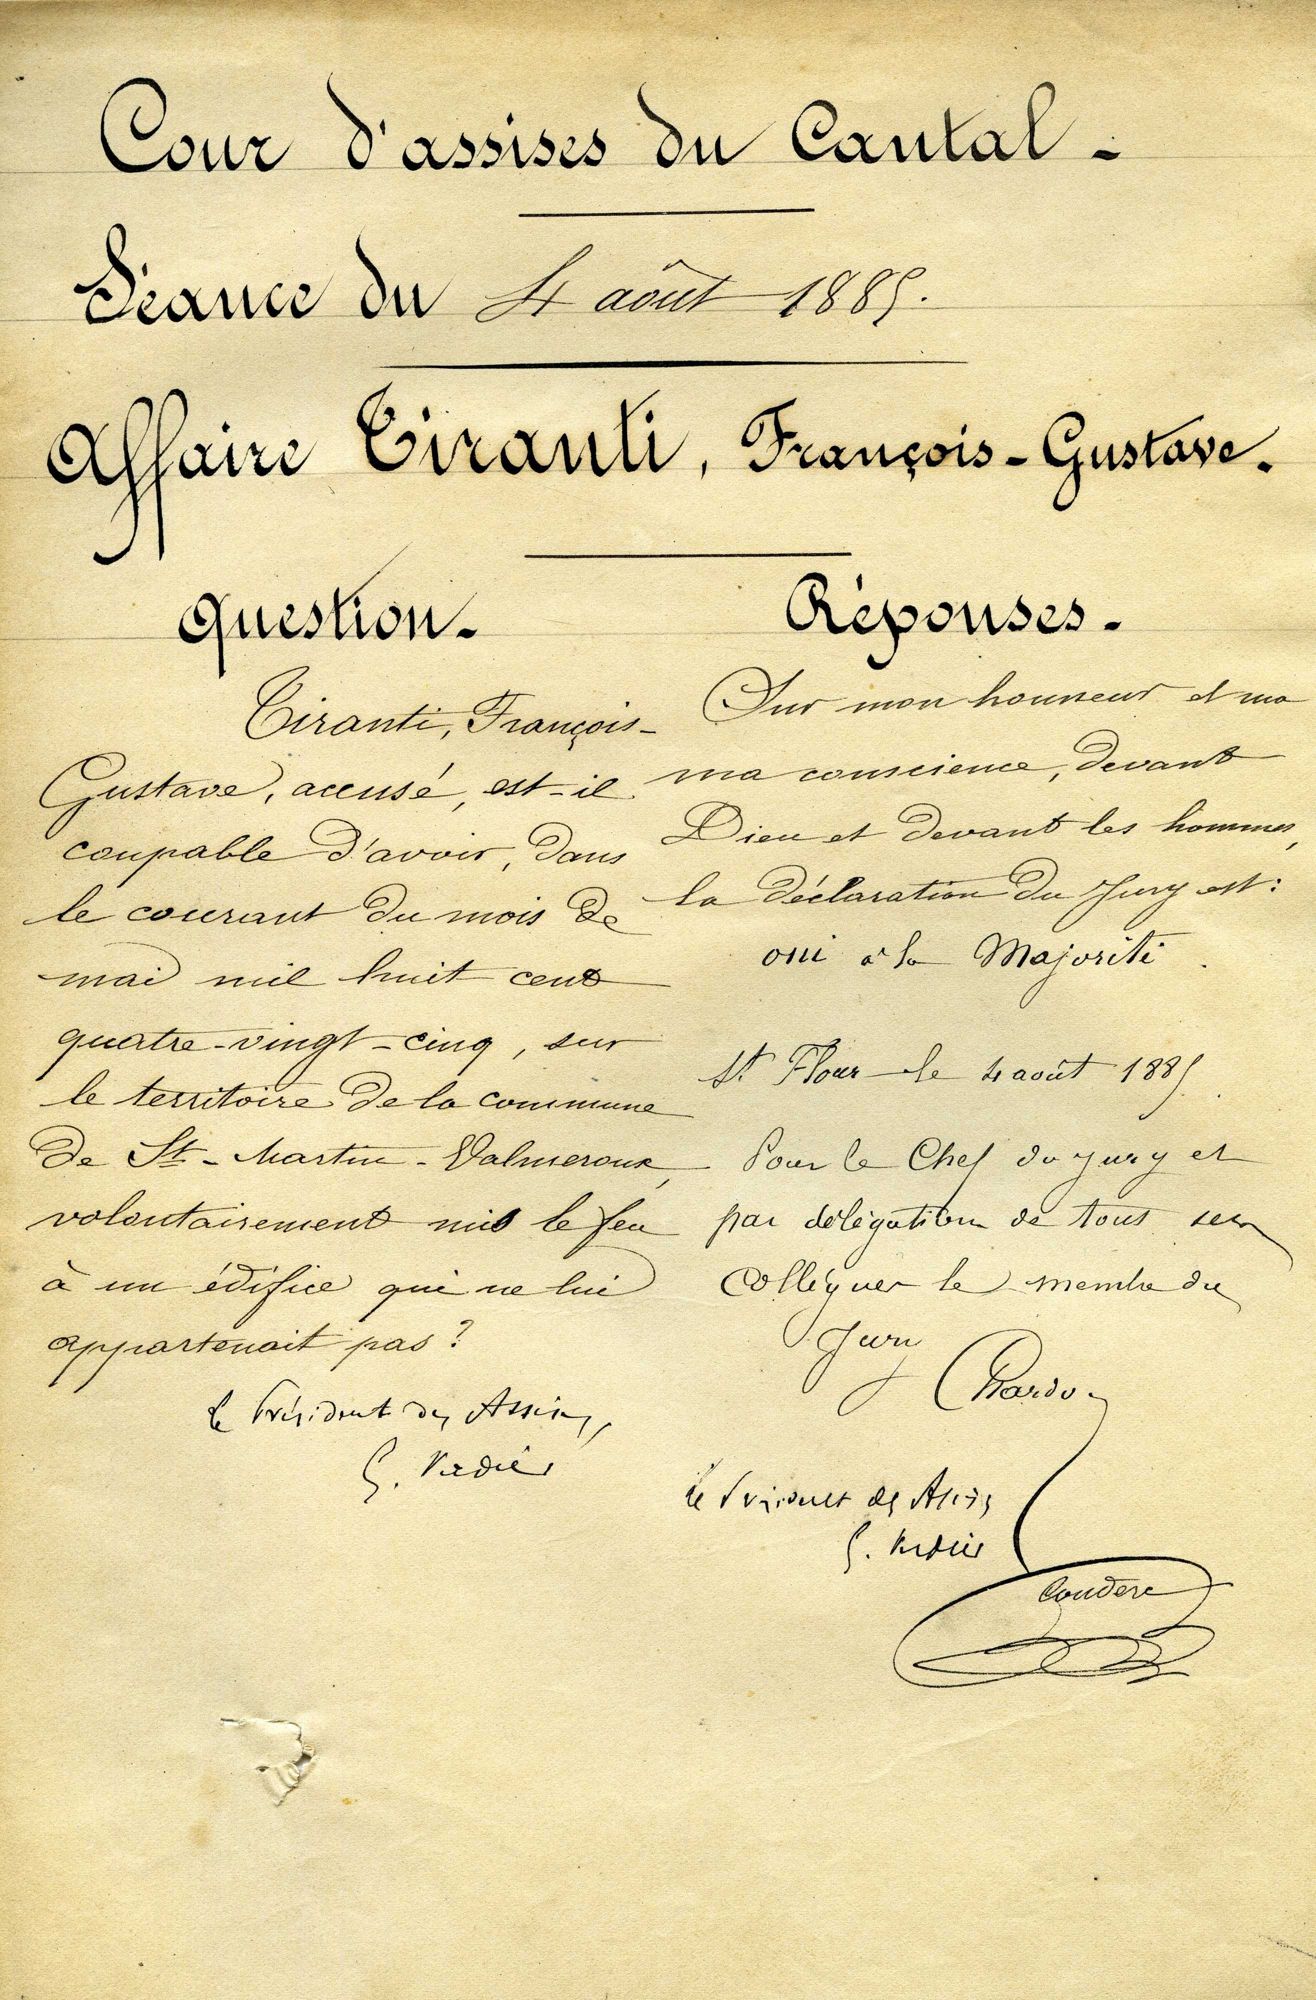 Cour d'assises du Cantal -
Séance du 4 août 1885.
Affaire Tiranti, François-Gustave.
Question.
Tiranti, François-
Gustave, accusé, est-il
coupable d'avoir, dans
le courant du mois de
mai mil huit cent
quatre-vingt-cinq, sur
le territoire de la commune
de St-Martin-Valmeroux,
volontairement mis le feu
à un édifice qui ne lui
appartenait pas?
Le Président des Assises,
G. Verdier
Réponses.
Sur mon honneur et ma
ma conscience, devant
Dieu et devant les hommes,
la déclaration du Jury est:
oui à la Majorité.
St. Flour le 4 août 1885.
Pour le Chef du jury et
par délégation de tous ses
Collègues le membre du
Jury
Chardon
Le Président des Assises
G. Verdier
Couderc